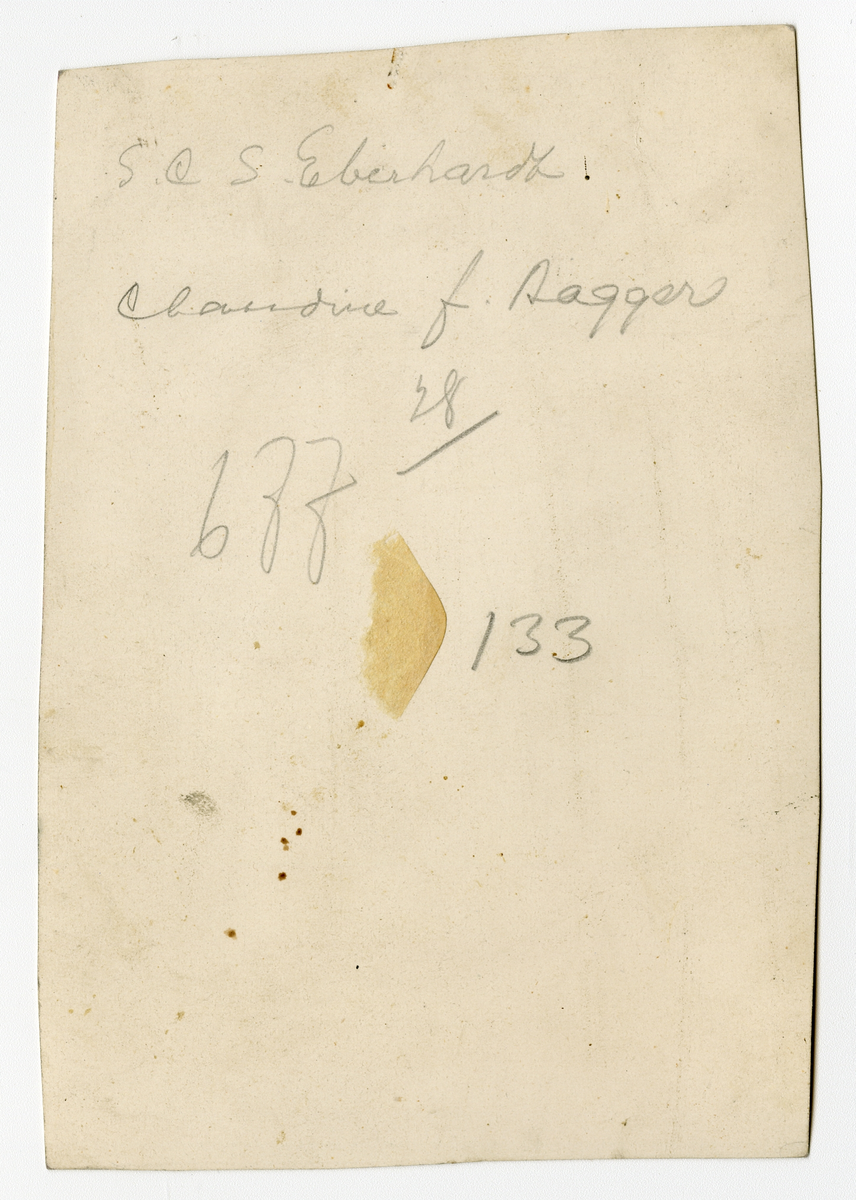 S. C S. Eberhardt
Claudine f. Aaggers
28
677
133